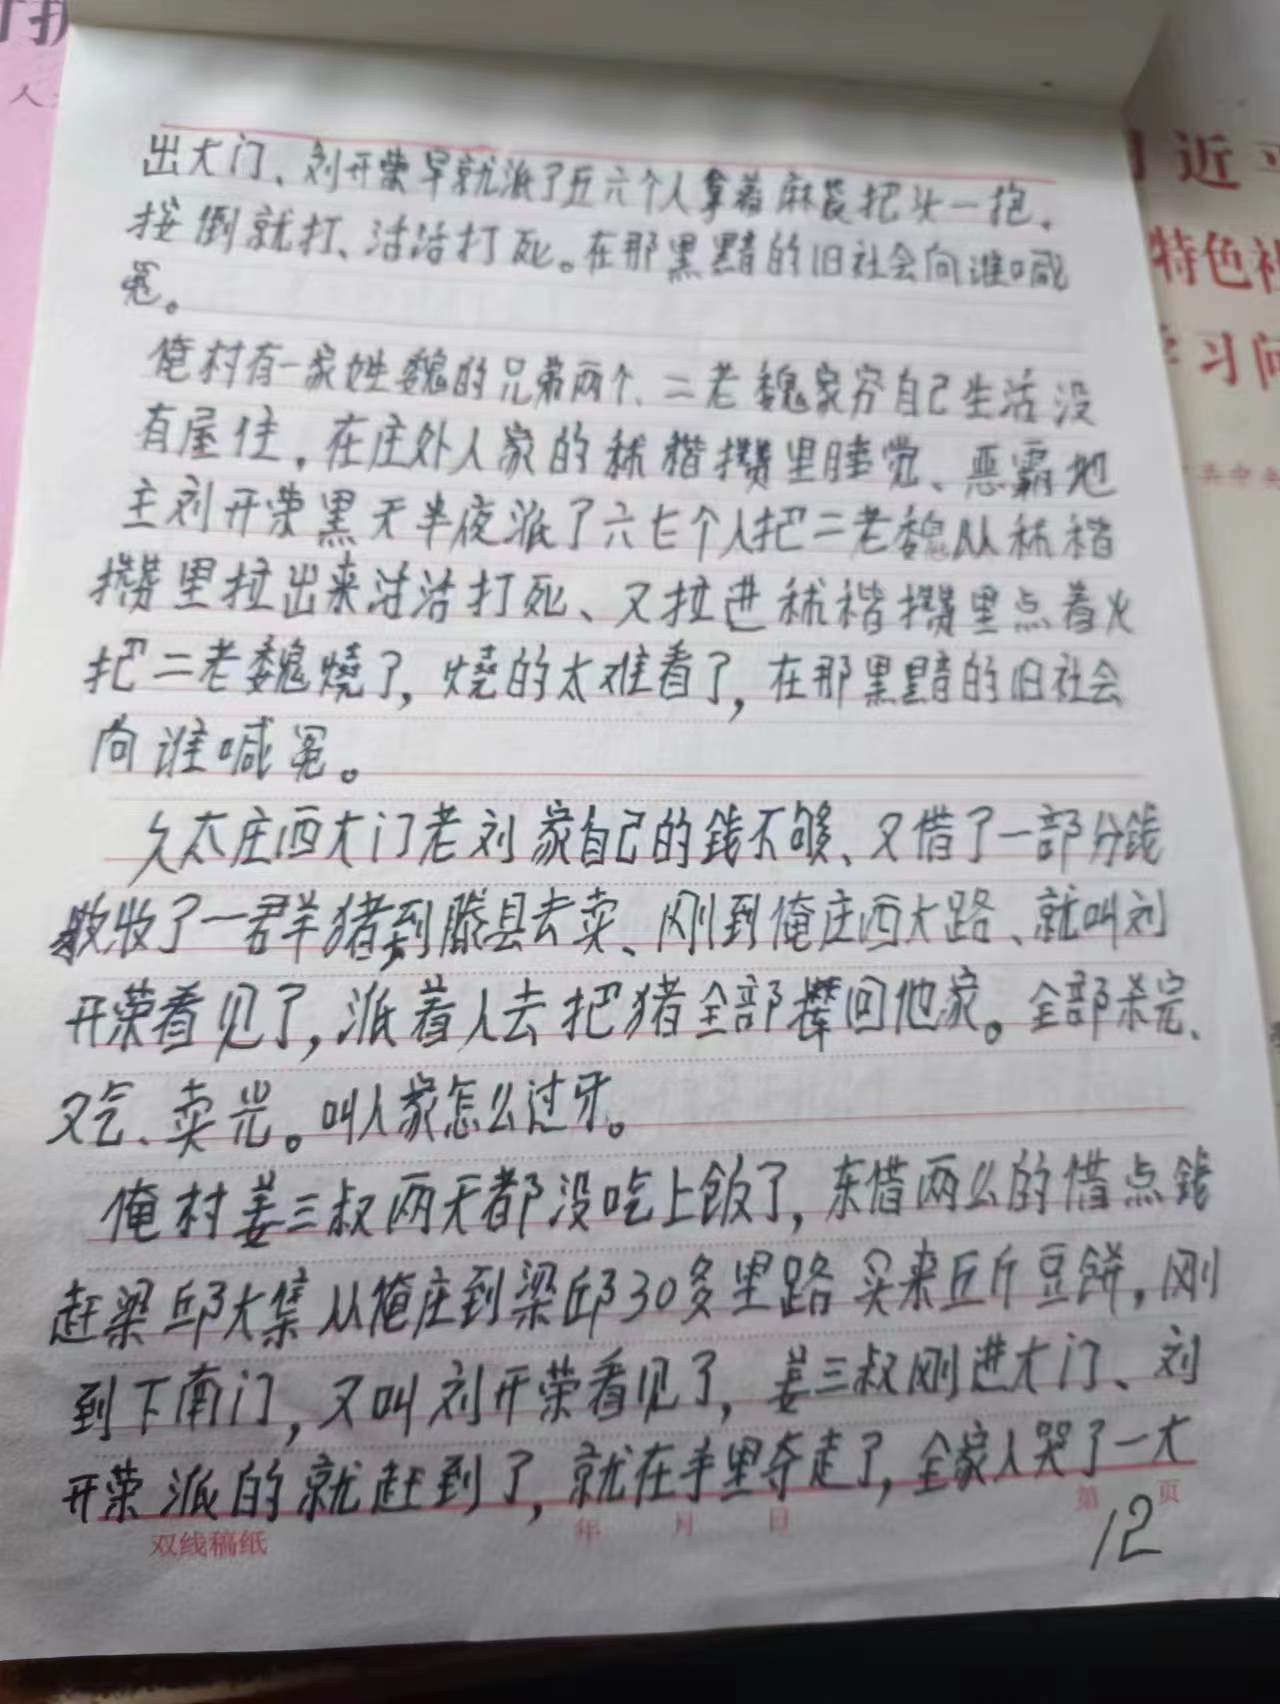 出大门、刘开荣早就派了五六个人拿着麻袋把头一抱、
按倒就打、活活打死。在那黑黯的旧社会向谁喊
冤。
俺村有一家姓魏的兄弟两个、二老魏家穷自己生活没
有屋住，在庄外人家的秫稭攒里睡觉、恶霸地
主刘开荣黑天半夜派了六七个人把二老魏从秫稭
攒里拉出来活活打死、又拉进秫稭攒里点着火
把二老魏燒了，燒的太难看了，在那黑黯的旧社会
向谁喊冤。
久太庄西大门老刘家自己的钱不够、又借了一部分钱
收了一群羊猪到滕县去卖、刚到俺庄西大路、就叫刘
开荣看见了，派着人去把猪全部撵回他家。全部杀完、
又乞、卖光。叫人家怎么过牙。
俺村姜三叔两天都没吃上饭了，东借两么的借点钱
赶梁邱大集从俺庄到梁邱30多里路买来五斤豆餅，刚
到下南门，又叫刘开荣看见了，姜三叔刚进大门、刘
开荣派的就赶到了，就在手里夺走了，全家人哭了一大
双线稿纸 年 月 日 第 页
12
习近平
特色社
学习问
中共中央